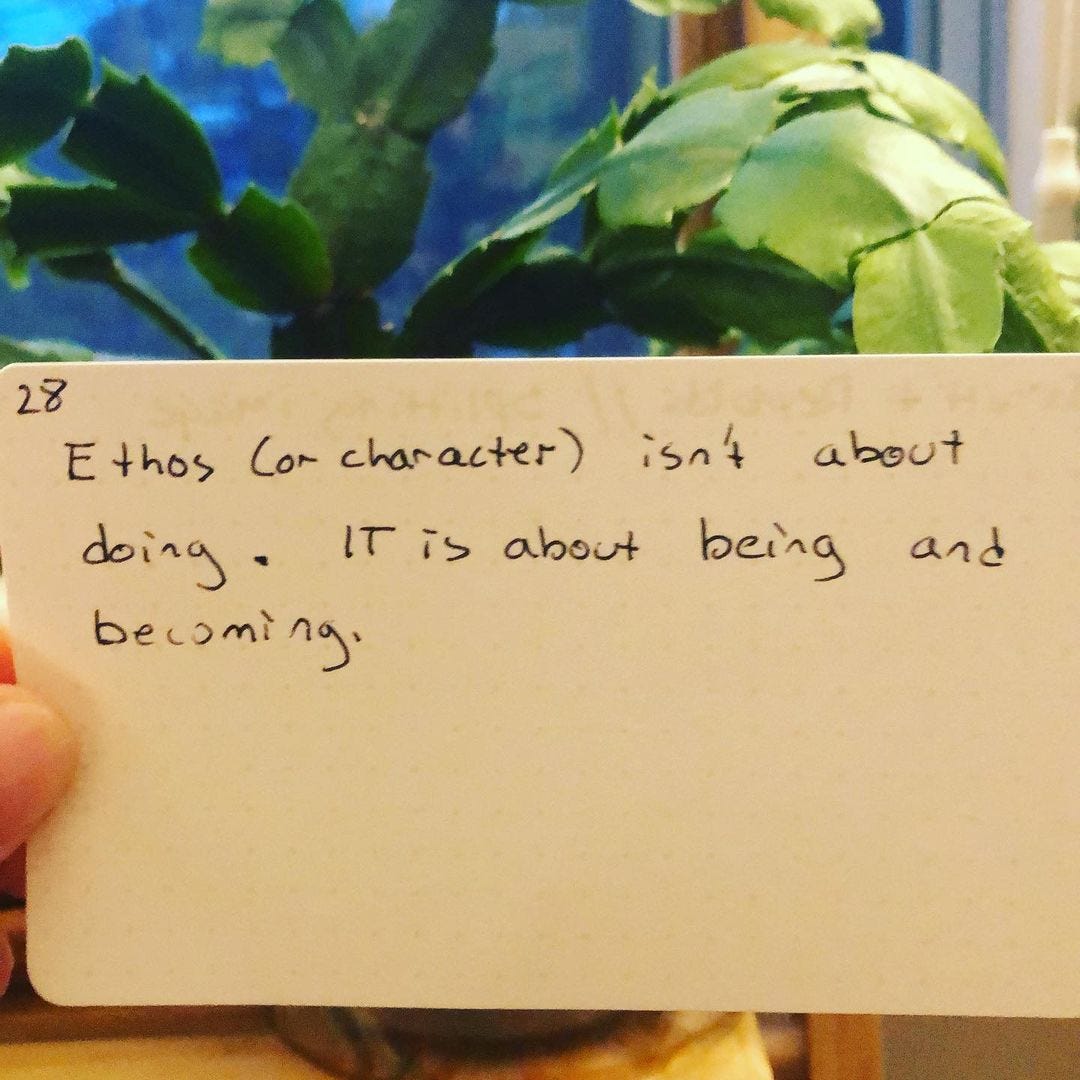 28
Ethos (or character) isn't about
doing. IT is about being and
becoming.